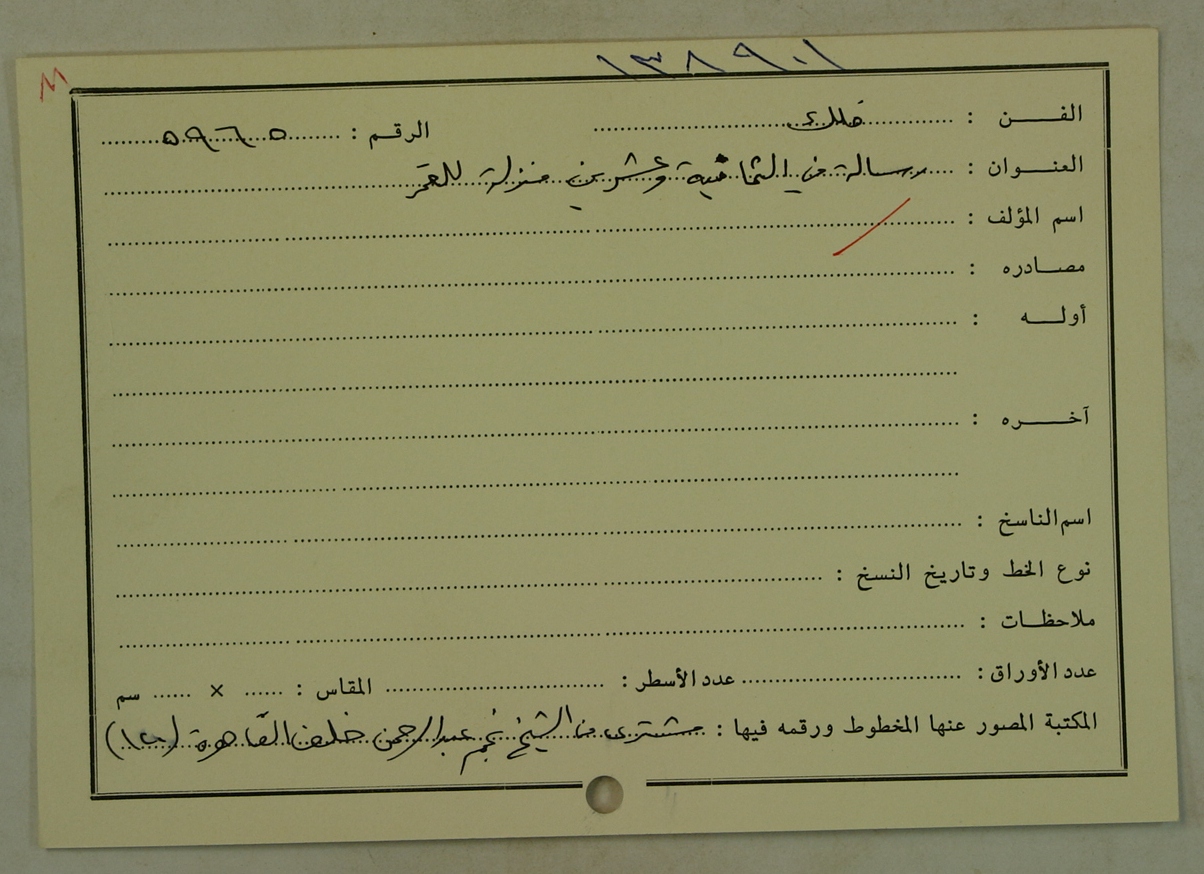 ١٣٨٩٠١
الفن : فلك الرقم : ٥٩٦٥
العنوان : رسالة في الثمانية وعشرين منزلة للقمر
اسم المؤلف :
مصادره :
أوله :
آخره :
اسم الناسخ :
نوع الخط وتاريخ النسخ :
ملاحظات :
عدد الأوراق : عدد الأسطر : المقاس : × سم
المكتبة المصور عنها المخطوط ورقمه فيها : مشترى من الشيخ نجم عبد الرحمن خلف القاهرة